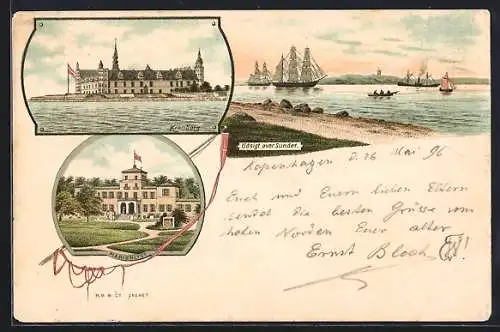 Kronborg
Udsigt over Sundet.
Marienlyst
Kopenhagen d. 26 Mai 96
Euch und Euern lieben Eltern
sendet die besten Grüsse vom
hohen Norden Euer alter
Ernst Bloch